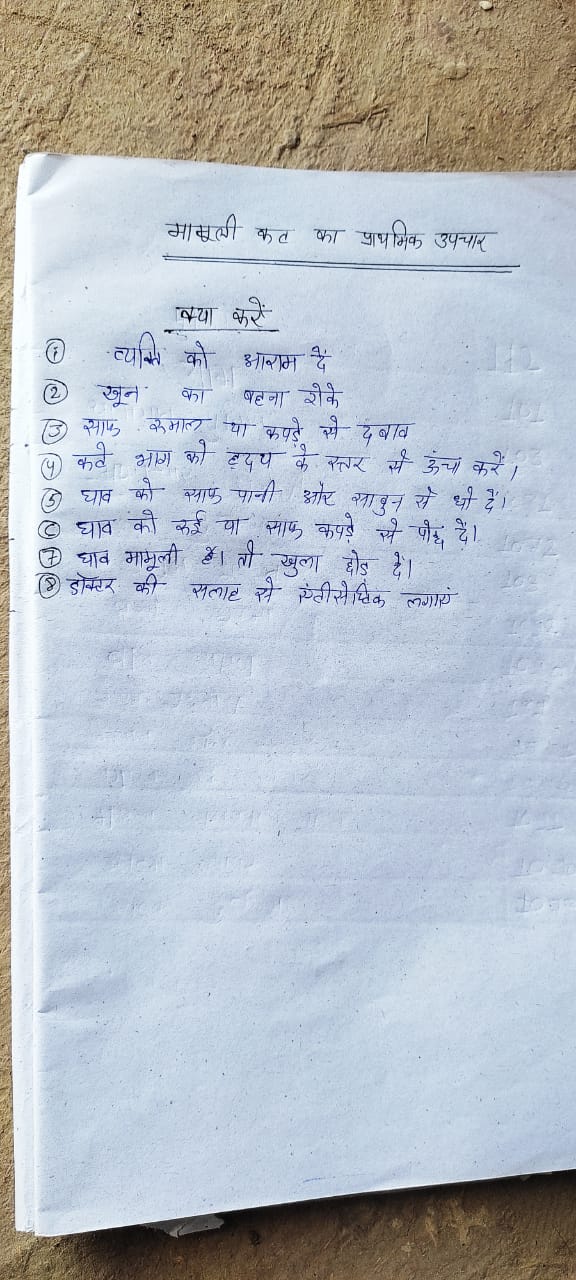 मामूली कट का प्राथमिक उपचार
क्या करें
① व्यक्ति को आराम दें
② खून का बहना रोके
③ साफ रुमाल या कपड़े से दबाव
④ कटे भाग को हृदय के स्तर से ऊंचा करें।
⑤ घाव को साफ पानी और साबुन से धो दें।
⑥ घाव को रुई या साफ कपड़े से पोछ दें।
⑦ घाव मामूली है। तो खुला छोड़ दें।
⑧ डॉक्टर की सलाह से एंटीसेप्टिक लगायें